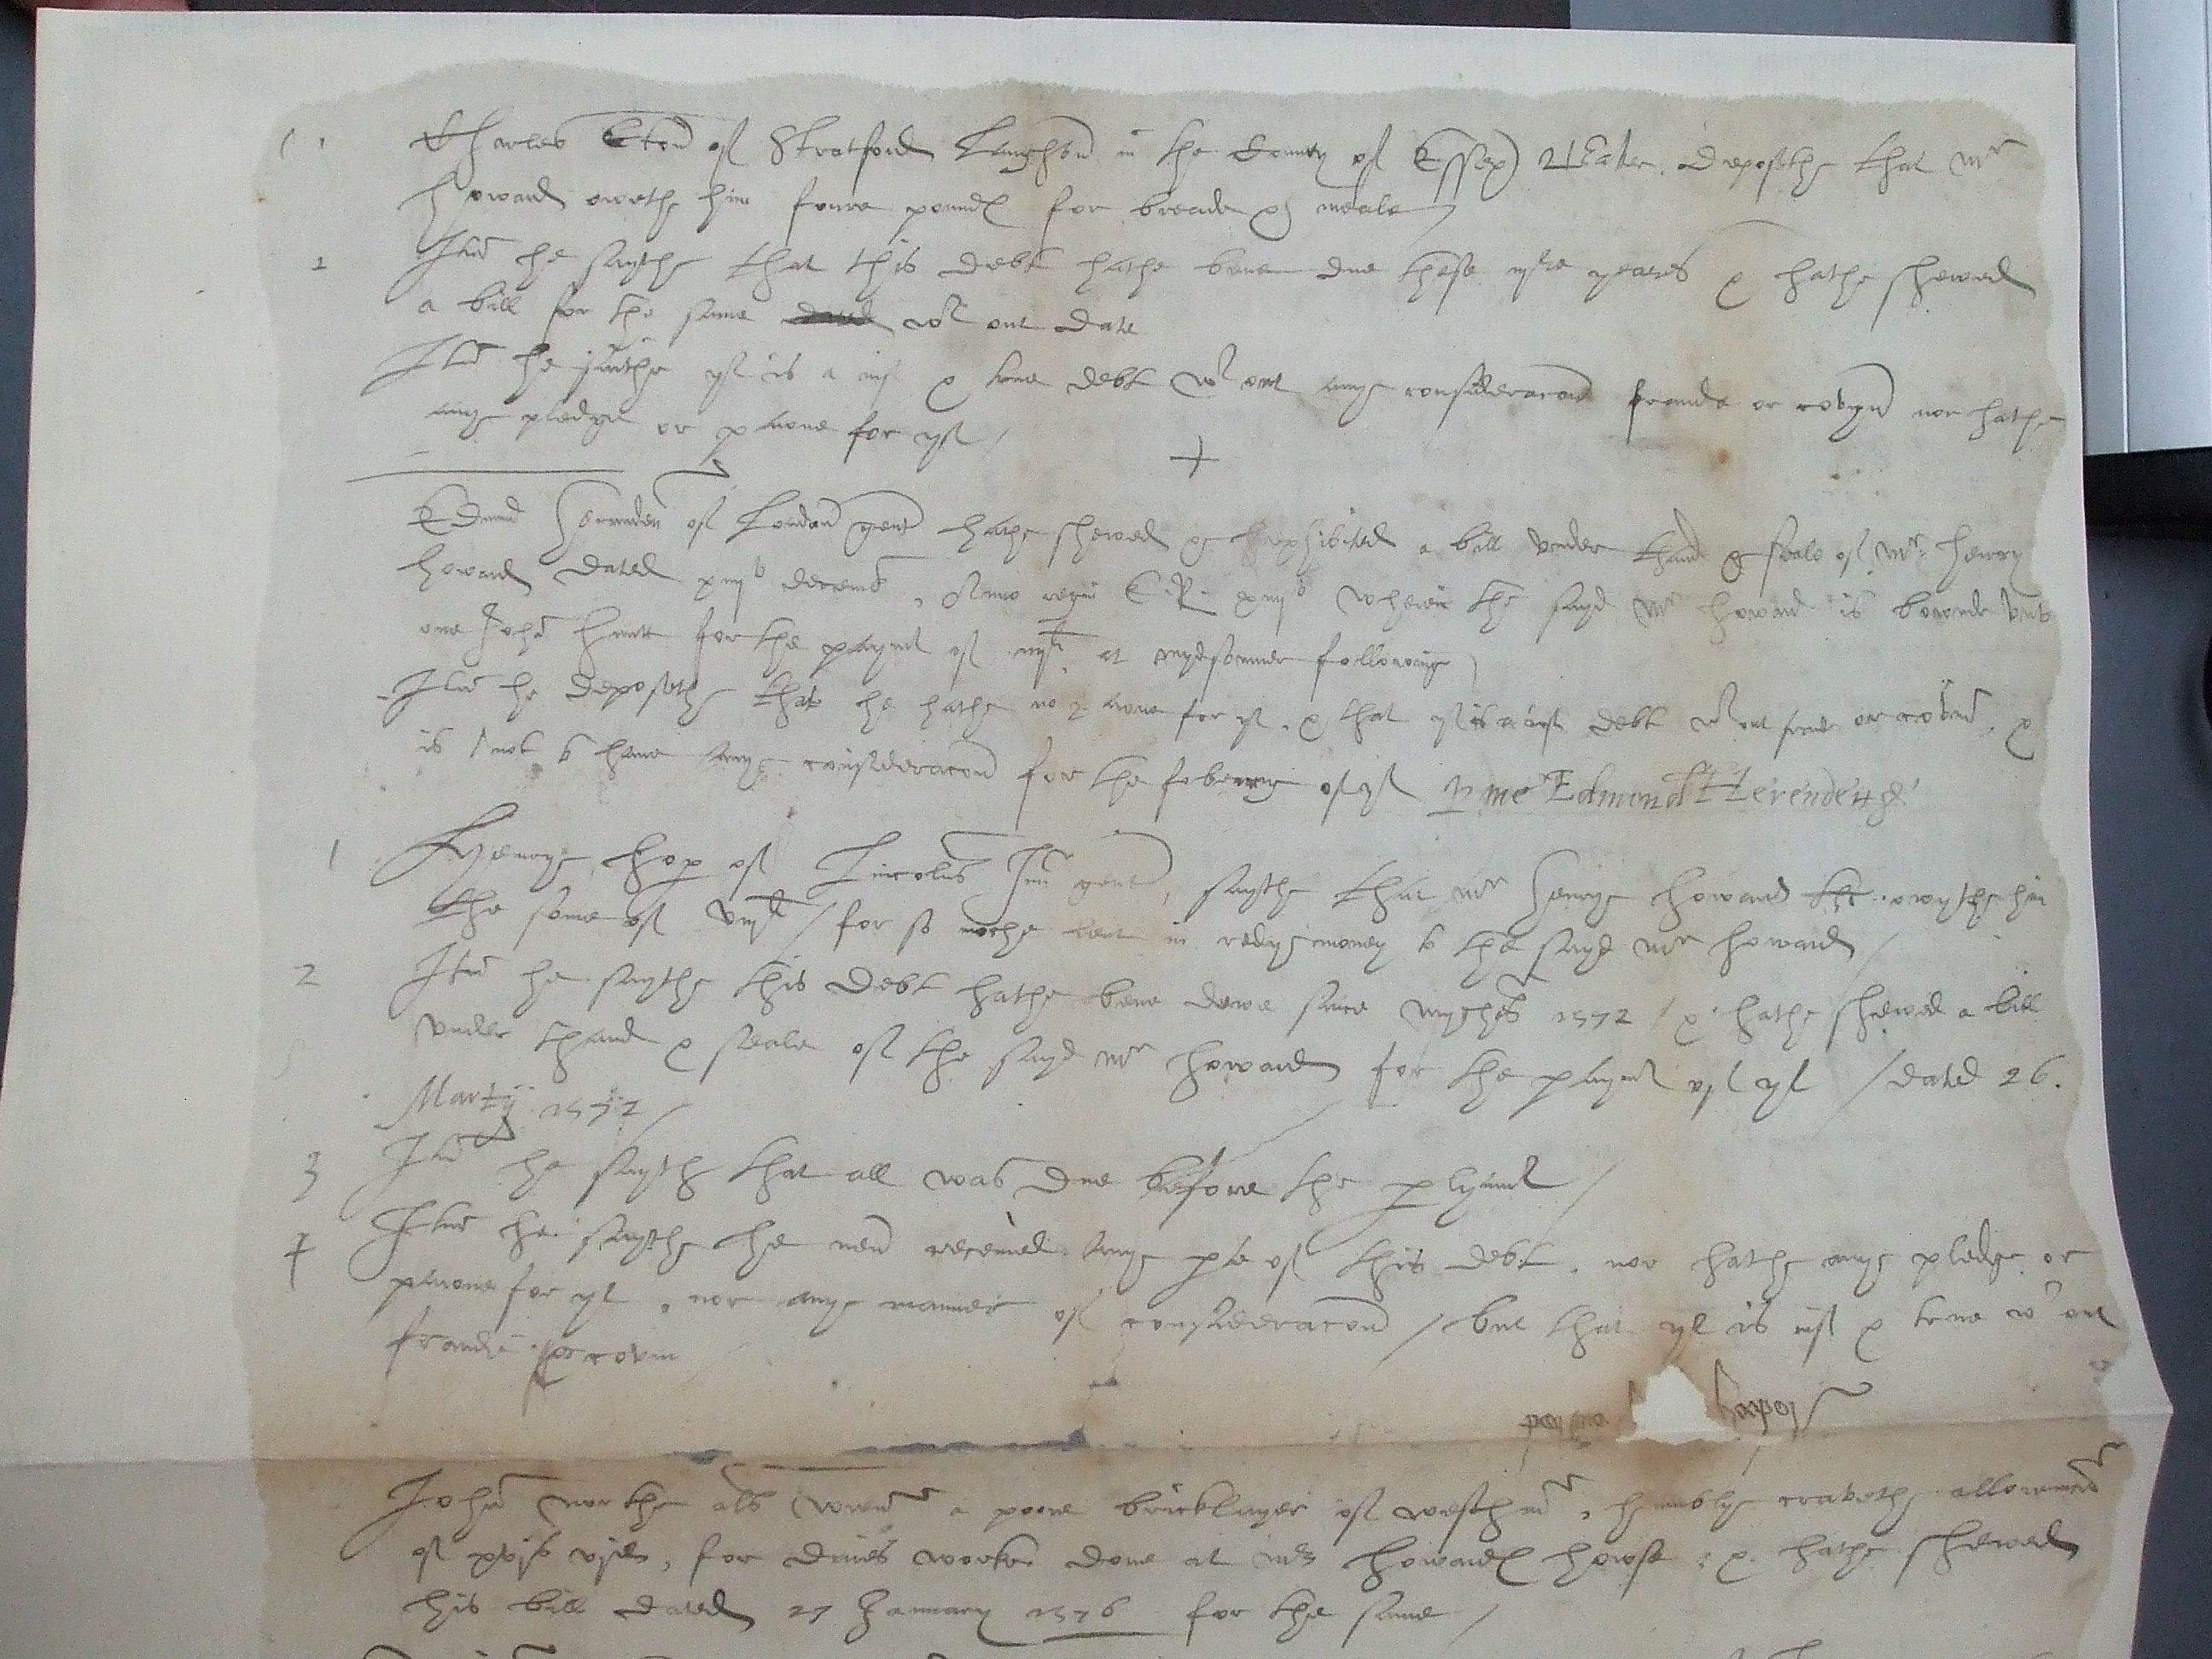 1 Charles Eton of Stratford Langhton in the County of Essex Baker. deposethe that Mr
howard owethe him foure pound for breade & meale
2 Itm he saythe that this debt hathe bene due these years & hathe shewed
a bill for the same wt out date
Itm he saithe yt is a iust & true debt wt out anye consideracon fraude or covyn nor hathe
anye pledge or pawne for yt /
Edmund Herenden of London gent hathe shewed & exhibited a bill under thand & seale of Mr henry
howard dated decemb, Anno regni E. R. wherein the sayd Mr howard is bounde unto
one John hunt for the paymt of at mydsomer following
Itm he deposethe that he hathe no pawne for yt, & that yt is a iust debt wt out fraude or covin, &
is not to have anye consideracon for the of yt p me Edmond Herendenge
1 Henrye hop of Lincolns Inn gent, saythe that Mr Henrye howard owythe him
the some of / for so moche lent in redye money to the sayd Mr howard /
2 Itm he saythe this debt hathe bene dewe since myches 1572 / & hathe shewed a bill
under thand & seale of the sayd Mr howard for the paymt of yt / dated 26.
Martij 1572 /
3 Itm he sayth that all was due before the plyamt /
4 Itm he saythe he nevr receaved anye pte of this debt, nor hathe anye pledge or
pawne for yt, nor anye manner of consideracon / but that yt is iust & true wt out
fraude or covin
John northe als a poore bricklayer of westham, humblye cravethe allowance
of xvjs viijd, for daies worke done at Mr howards howse: & hathe shewed
his bill dated 27 January 1576 for the same /